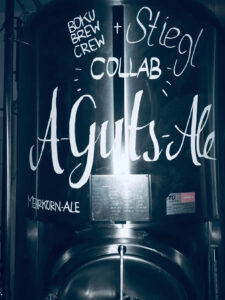 BOKU
BREW
CREW
+ Stiegl
COLLAB
A-Guts-Ale
MEHRKORN-ALE